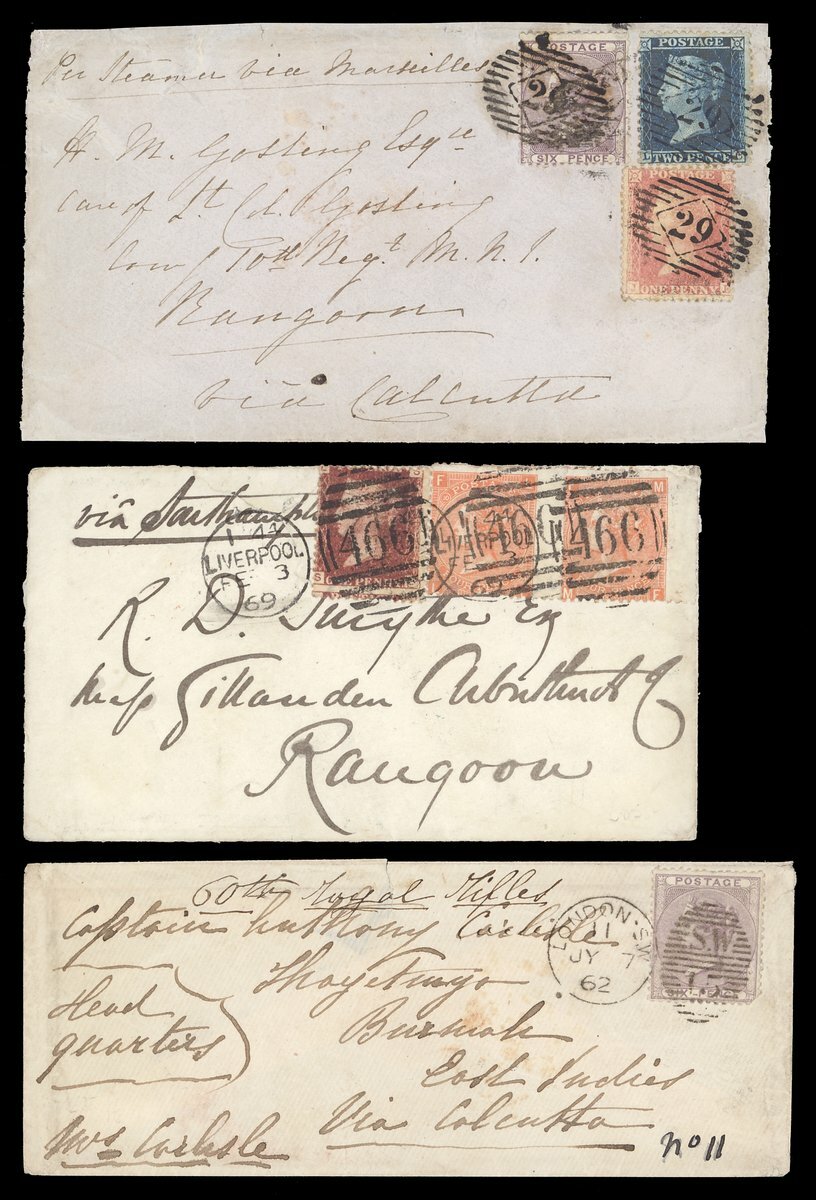 Per Steamer via Marseilles
POSTAGE
SIX PENCE
POSTAGE
TWO PENCE
POSTAGE
29
ONE PENNY
H. M. Gosling Esqre
Care of Lt Col. Gosling
Comg 10th Regt M. N. I.
Rangoon
via Calcutta
via Southampton
1 44
LIVERPOOL
FE 3
69
466
1 44
LIVERPOOL
FE 3
69
466
466
R. D. Smythe Esq
Gillanden Arbuthnot
Rangoon
60th Royal Rifles
Captain Anthony Carlisle
Head
quarters
Thayetmyo
Burmah
East Indies
Via Calcutta
Mrs Carlisle
no 11
LONDON S.W
11
JY 7
62
POSTAGE
SW
SIX PENCE